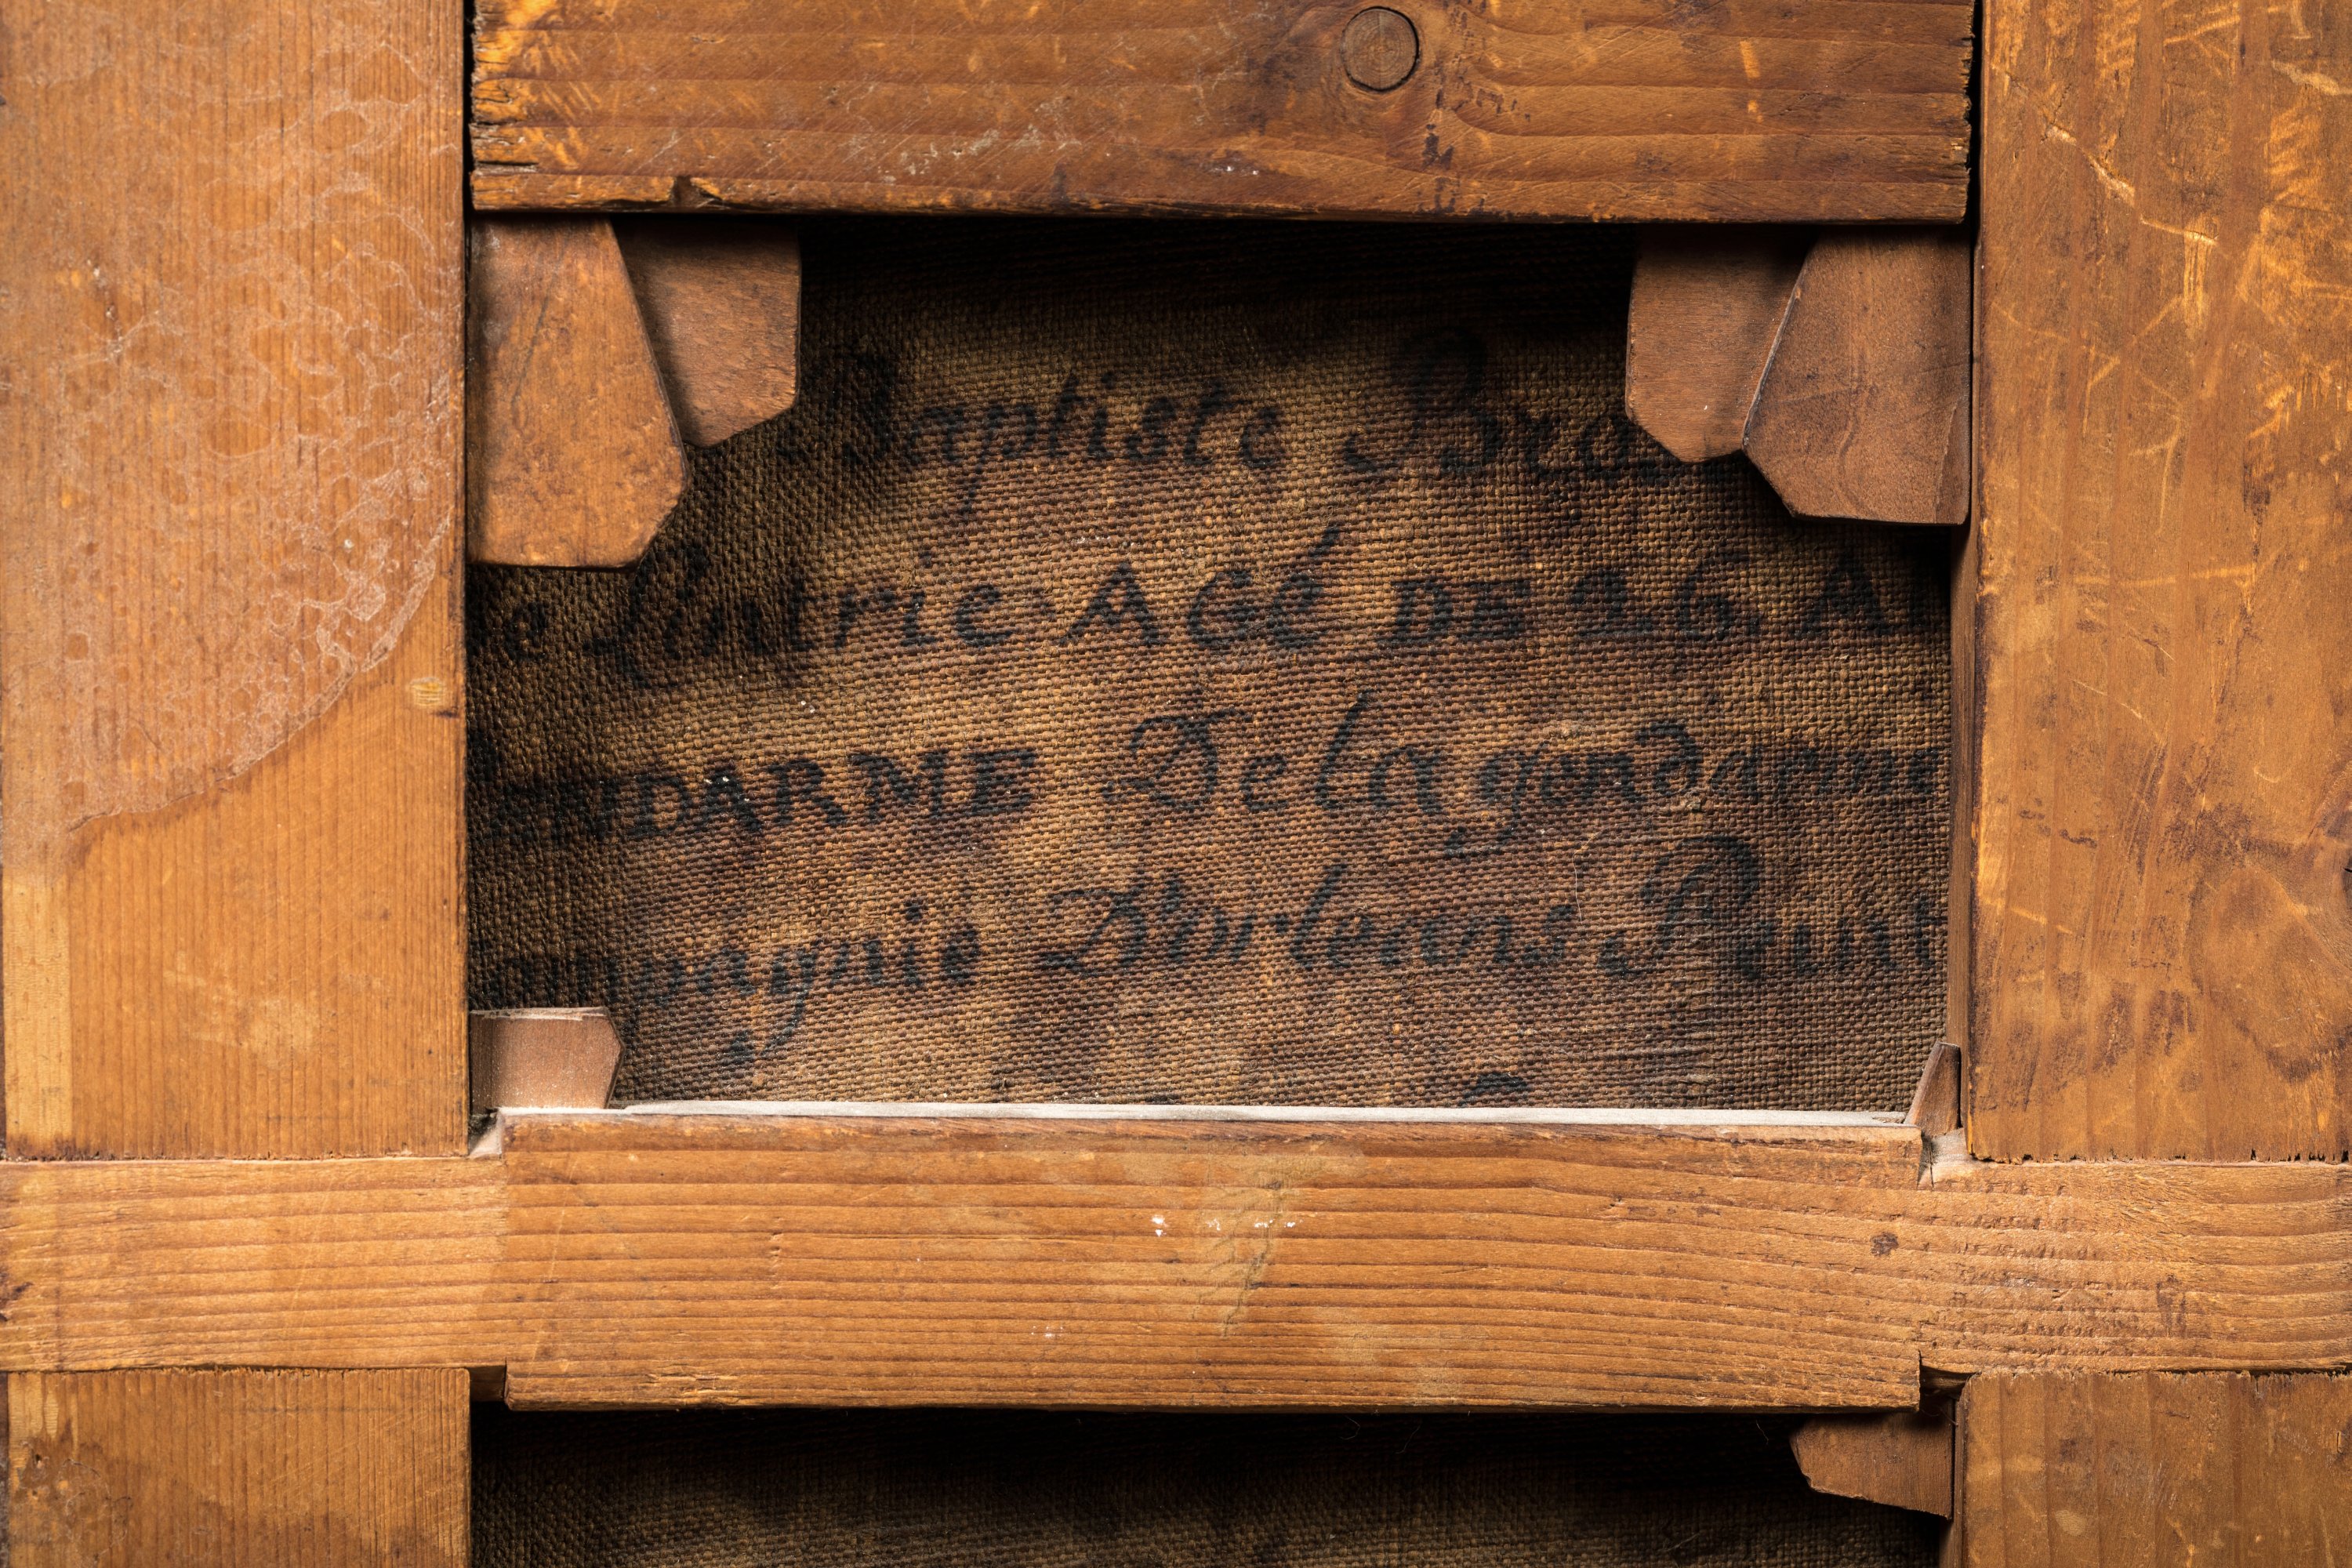 Baptiste Bro
e Lutrie AGé DE 26. A
NDARNE De la gendarme
pagnie D'orleans Peint